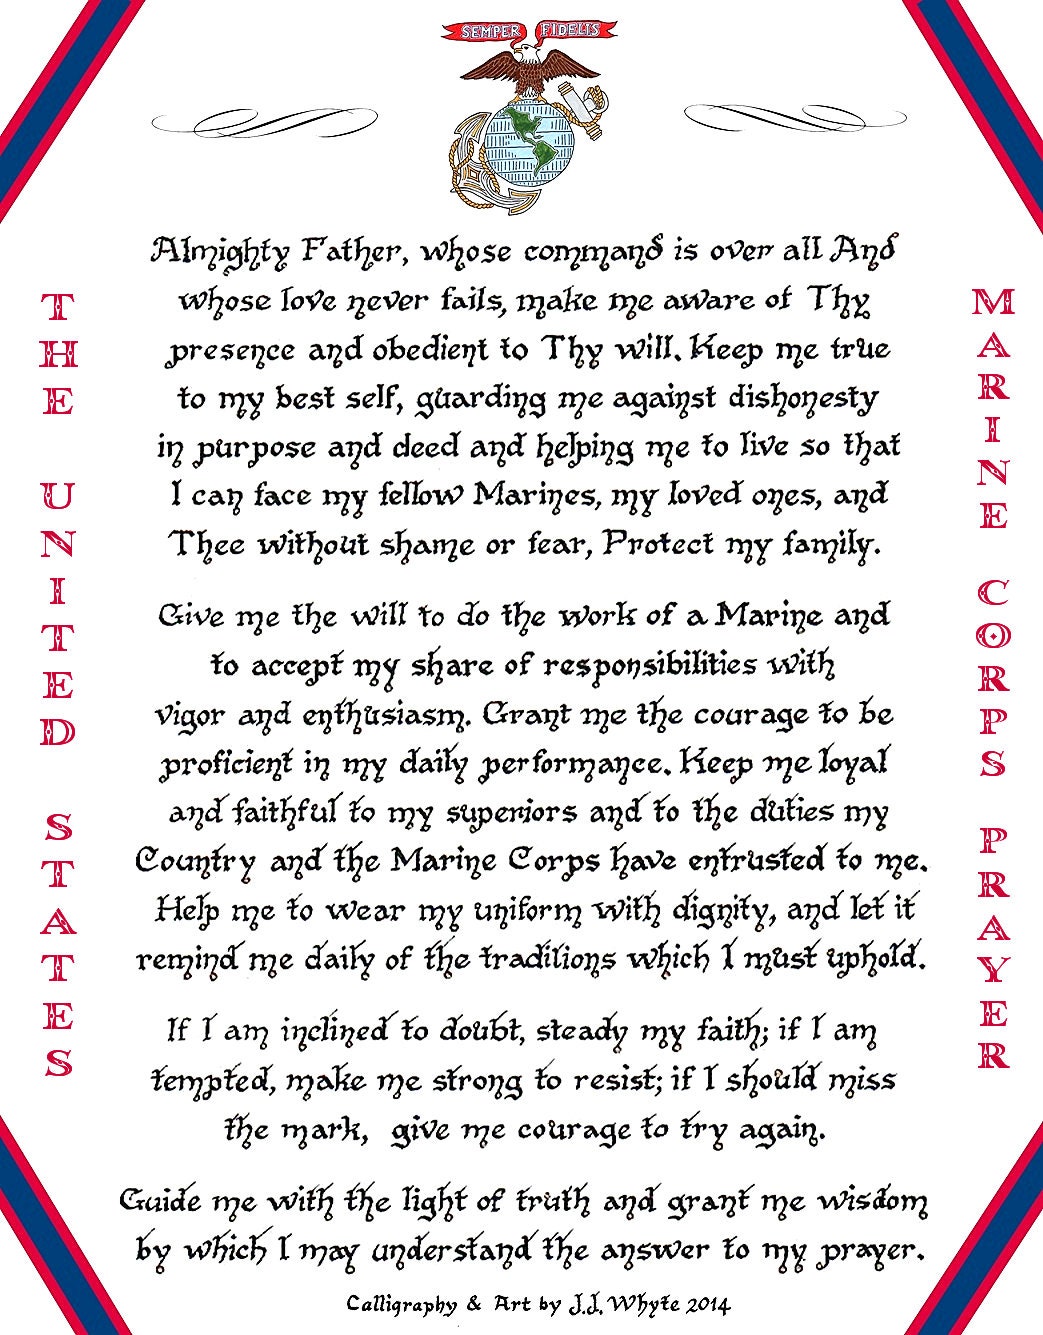 SEMPER FIDELIS
Almighty Father, whose command is over all And
whose love never fails, make me aware of Thy
presence and obedient to Thy will. Keep me true
to my best self, guarding me against dishonesty
in purpose and deed and helping me to live so that
I can face my fellow Marines, my loved ones, and
Thee without shame or fear, Protect my family.
Give me the will to do the work of a Marine and
to accept my share of responsibilities with
vigor and enthusiasm. Grant me the courage to be
proficient in my daily performance. Keep me loyal
and faithful to my superiors and to the duties my
Country and the Marine Corps have entrusted to me.
Help me to wear my uniform with dignity, and let it
remind me daily of the traditions which I must uphold.
If I am inclined to doubt, steady my faith; if I am
tempted, make me strong to resist; if I should miss
the mark, give me courage to try again.
Guide me with the light of truth and grant me wisdom
by which I may understand the answer to my prayer.
Calligraphy & Art by J.J. Whyte 2014
THE UNITED STATES
MARINE CORPS PRAYER